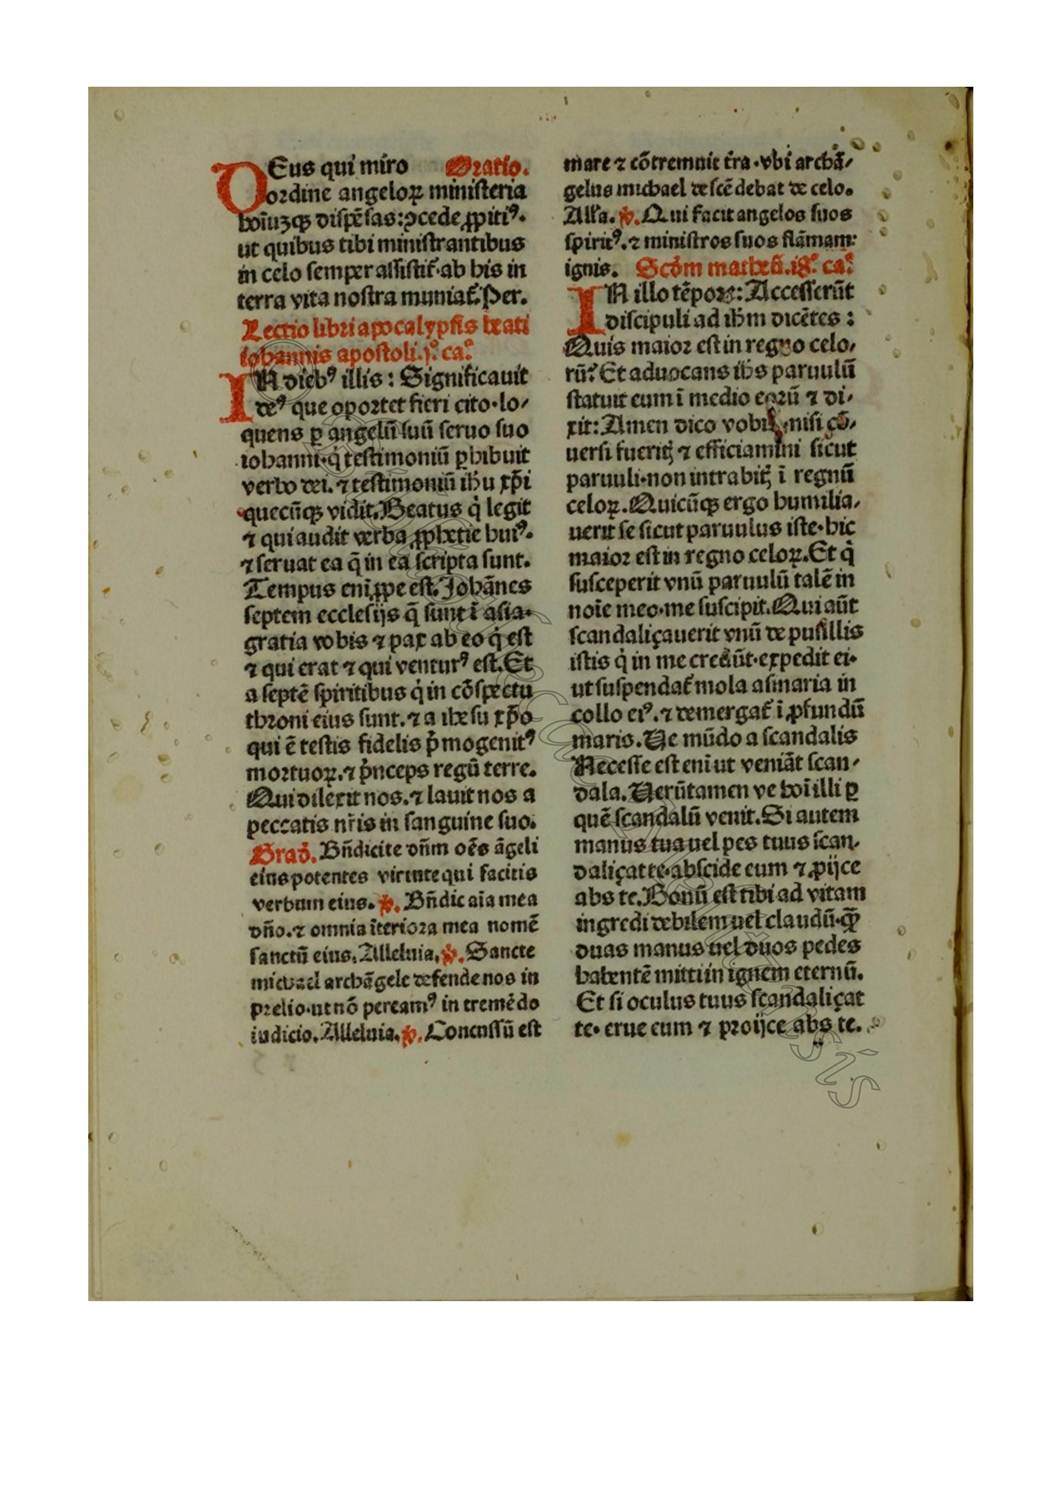 DEus qui miro Oratio.
ordine angeloꝝ ministeria
hoı̄uꝫqꝫ dispēsas: ꝯcede ꝓpitiꝰ.
ut quibus tibi ministrantibus
in celo semper assistiť. ab his in
terra vita nostra muniať. Per.
Lectio libri apocalypsis beati
iohannis apostoli. jº. caº.
IN diebꝰ illis: Significauit
deꝰ que oportet fieri cito. lo-
quens ꝑ angelū suū seruo suo
iohanni. q̇ testimoniū ꝑhibuit
verbo dei. ⁊ testimoniū ih̄u xp̄i
quecūqꝫ vidit. Beatus q̇ legit
⁊ qui audit verba ꝓphetie huiꝰ.
⁊ seruat ea q̄ in ea scripta sunt.
Tempus eni ꝓpe est. Johānes
septem ecclesijs q̄ sunt ī asia.
gratia vobis ⁊ pax ab eo q̇ est
⁊ qui erat ⁊ qui venturꝰ est. Et
a septē spiritibus q̇ in cōspectu
throni eius sunt. ⁊ a ihesu xp̄o
qui ē testis fidelis p̄mogenitꝰ
mortuoꝝ. ⁊ p̄nceps regū terre.
Qui dilexit nos. ⁊ lauit nos a
peccatis nr̄is in sanguine suo.
Grad̄. Bn̄dicite dn̄m oēs āgeli
eius potentes virtute qui facitis
verbum eius. ℣. Bn̄dic aı̄a mea
dn̄o. ⁊ omnia īteriora mea nomē
sanctū eius. Alleluia. ℣. Sancte
michael archāgele defende nos in
prelio. ut nō pereamꝰ in tremēdo
iudicio. Alleluia. ℣. Concussū est
mare ⁊ cōtremuit t̄ra. vbi archā-
gelus michael descēdebat de celo.
All'a. ℣. Qui facit angelos suos
spiritꝰ. ⁊ ministros suos flāmam:
ignis. Scd̄m matheū. i8º. caº.
IN illo tēpore: Accesserūt
discipuli ad ih̄m dicētes:
Quis maior est in regno celo-
rū? Et aduocans ih̄s paruulū
statuit eum ī medio eorū ⁊ di-
xit: Amen dico vobis. nisi cō-
uersi fueritꝭ ⁊ efficiamini sicut
paruuli. non intrabitꝭ ī regnū
celoꝝ. Quicūqꝫ ergo humilia-
uerit se sicut paruulus iste. hic
maior est in regno celoꝝ. Et q̇
susceperit vnū paruulū talē in
noı̄e meo. me suscipit. Qui aūt
scandaliçauerit vnū de pusillis
istis q̇ in me credūt. expedit ei.
ut suspendať mola asinaria in
collo eiꝰ. ⁊ demergať ī ꝓfundū
maris. Ve mūdo a scandalis
Necesse est enī ut veniāt scan-
dala. Uerūtamen ve hoı̄i illi ꝑ
quē scandalū venit. Si autem
manus tua uel pes tuus scan-
daliçat te. abscide eum ⁊ ꝓijce
abs te. Bonū est tibi ad vitam
ingredi debilem uel claudū. qꝫ̄
duas manus uel duos pedes
habentē mitti in ignem eternū.
Et si oculus tuus scandaliçat
te. erue eum ⁊ proijce abs te.